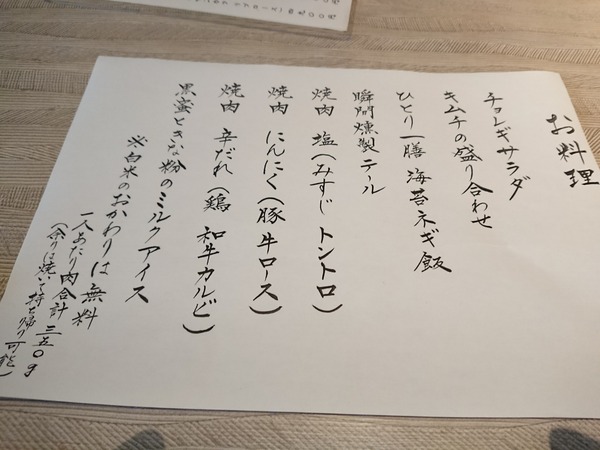 お料理
チョレギサラダ
キムチの盛り合わせ
ひとり一膳 海苔ネギ飯
瞬間燻製テール
焼肉 塩(みすじ トントロ)
焼肉 にんにく(豚 牛ロース)
焼肉 辛だれ(鶏 和牛カルビ)
黒蜜ときな粉のミルクアイス
※白米のおかわりは無料
一人あたり肉合計 三五〇g
(余りは焼いて持ち帰り可能)